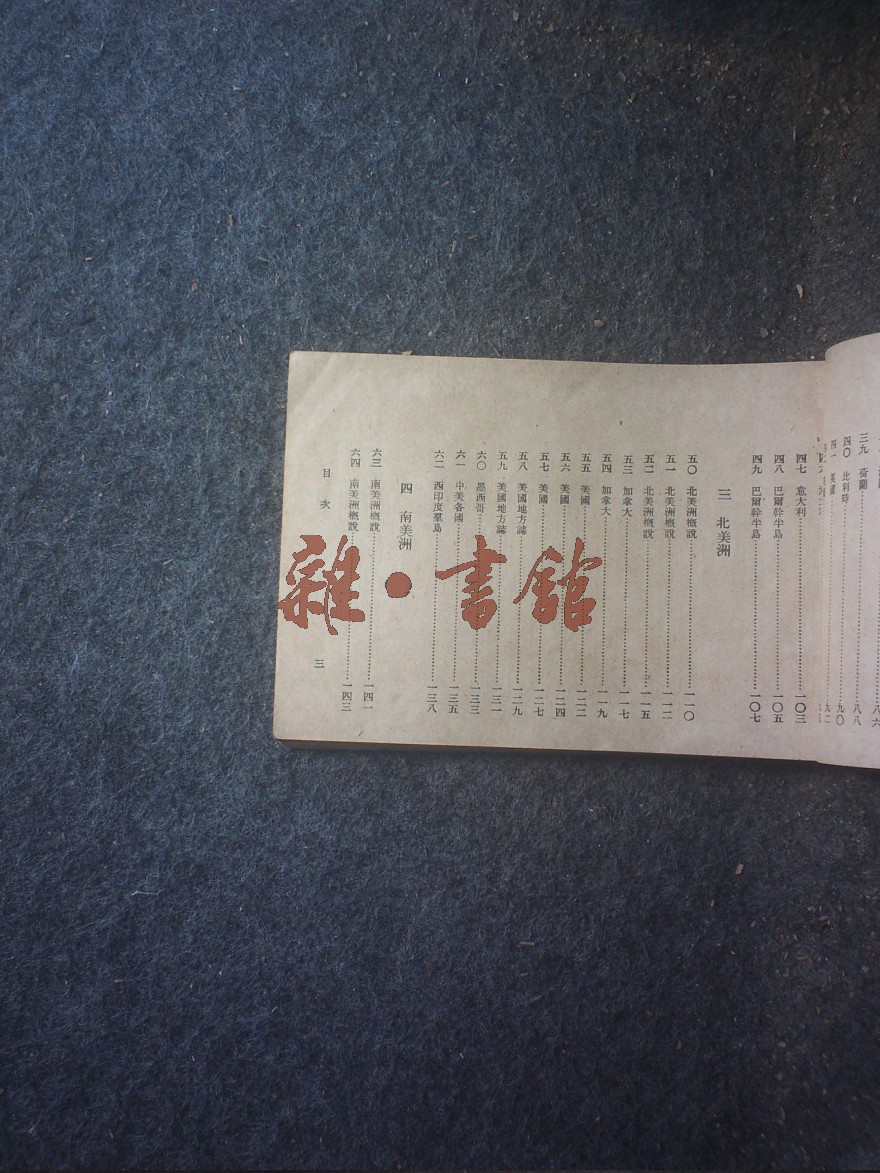 三九 荷蘭 八八
四〇 比利時 九〇
四一 英國 九二
四七 意大利 一〇三
四八 巴爾幹半島 一〇五
四九 巴爾幹半島 一〇七
三 北美洲
五〇 北美洲概說 一一〇
五一 北美洲概說 一一二
五二 北美洲概說 一一五
五三 加拿大 一一七
五四 加拿大 一一九
五五 美國 一二二
五六 美國 一二四
五七 美國 一二七
五八 美國地方誌 一二九
五九 美國地方誌 一三一
六〇 墨西哥 一三三
六一 中美各國 一三五
六二 西印度羣島 一三八
四 南美洲
六三 南美洲概說 一四一
六四 南美洲概說 一四三
目次 三
雜·書館